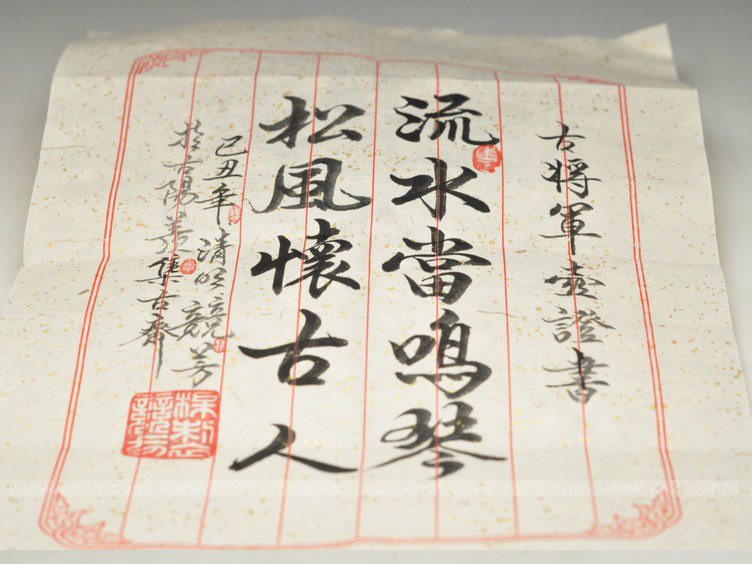 古將軍壺證書
流水當鳴琴
松風懷古人
己丑年清明競芳
於古陽羨集古齋
www.zs23.com www.zs23.com www.zs23.com www.zs23.com